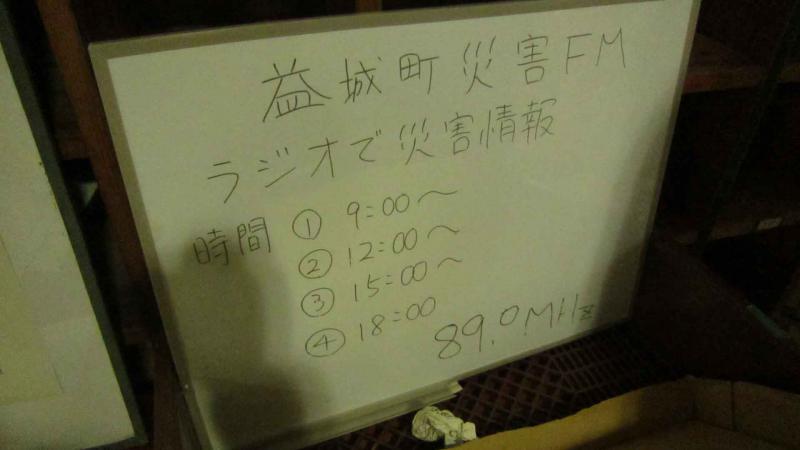 益城町災害FM
ラジオで災害情報
時間 ① 9:00〜
② 12:00〜
③ 15:00〜
④ 18:00
89.0MHz